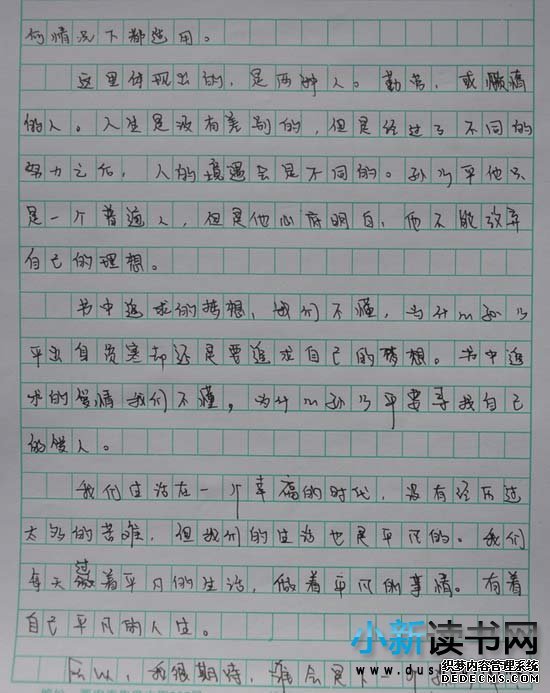 何情况下都适用。
这里体现出的，是两种人。勤劳，或懒惰
的人。人生是没有差别的，但是经过了不同的
努力之后，人的境遇会是不同的。孙少平他只
是一个普通人，但是他心存明白，他不能放弃
自己的理想。
书中追求的梦想，我们不懂，为什么孙少
平出自贫寒却还是要追求自己的梦想。书中追
求的爱情我们不懂，为什么孙少平要寻找自己
的爱人。
我们生活在一个幸福的时代，没有经历过
太多的苦难，但我们的生活也是平凡的。我们
每天过着平凡的生活，做着平凡的事情。有着
自己平凡的人生。
所以，我很期待，谁会是下一个
小新读书网
织梦内容管理系统